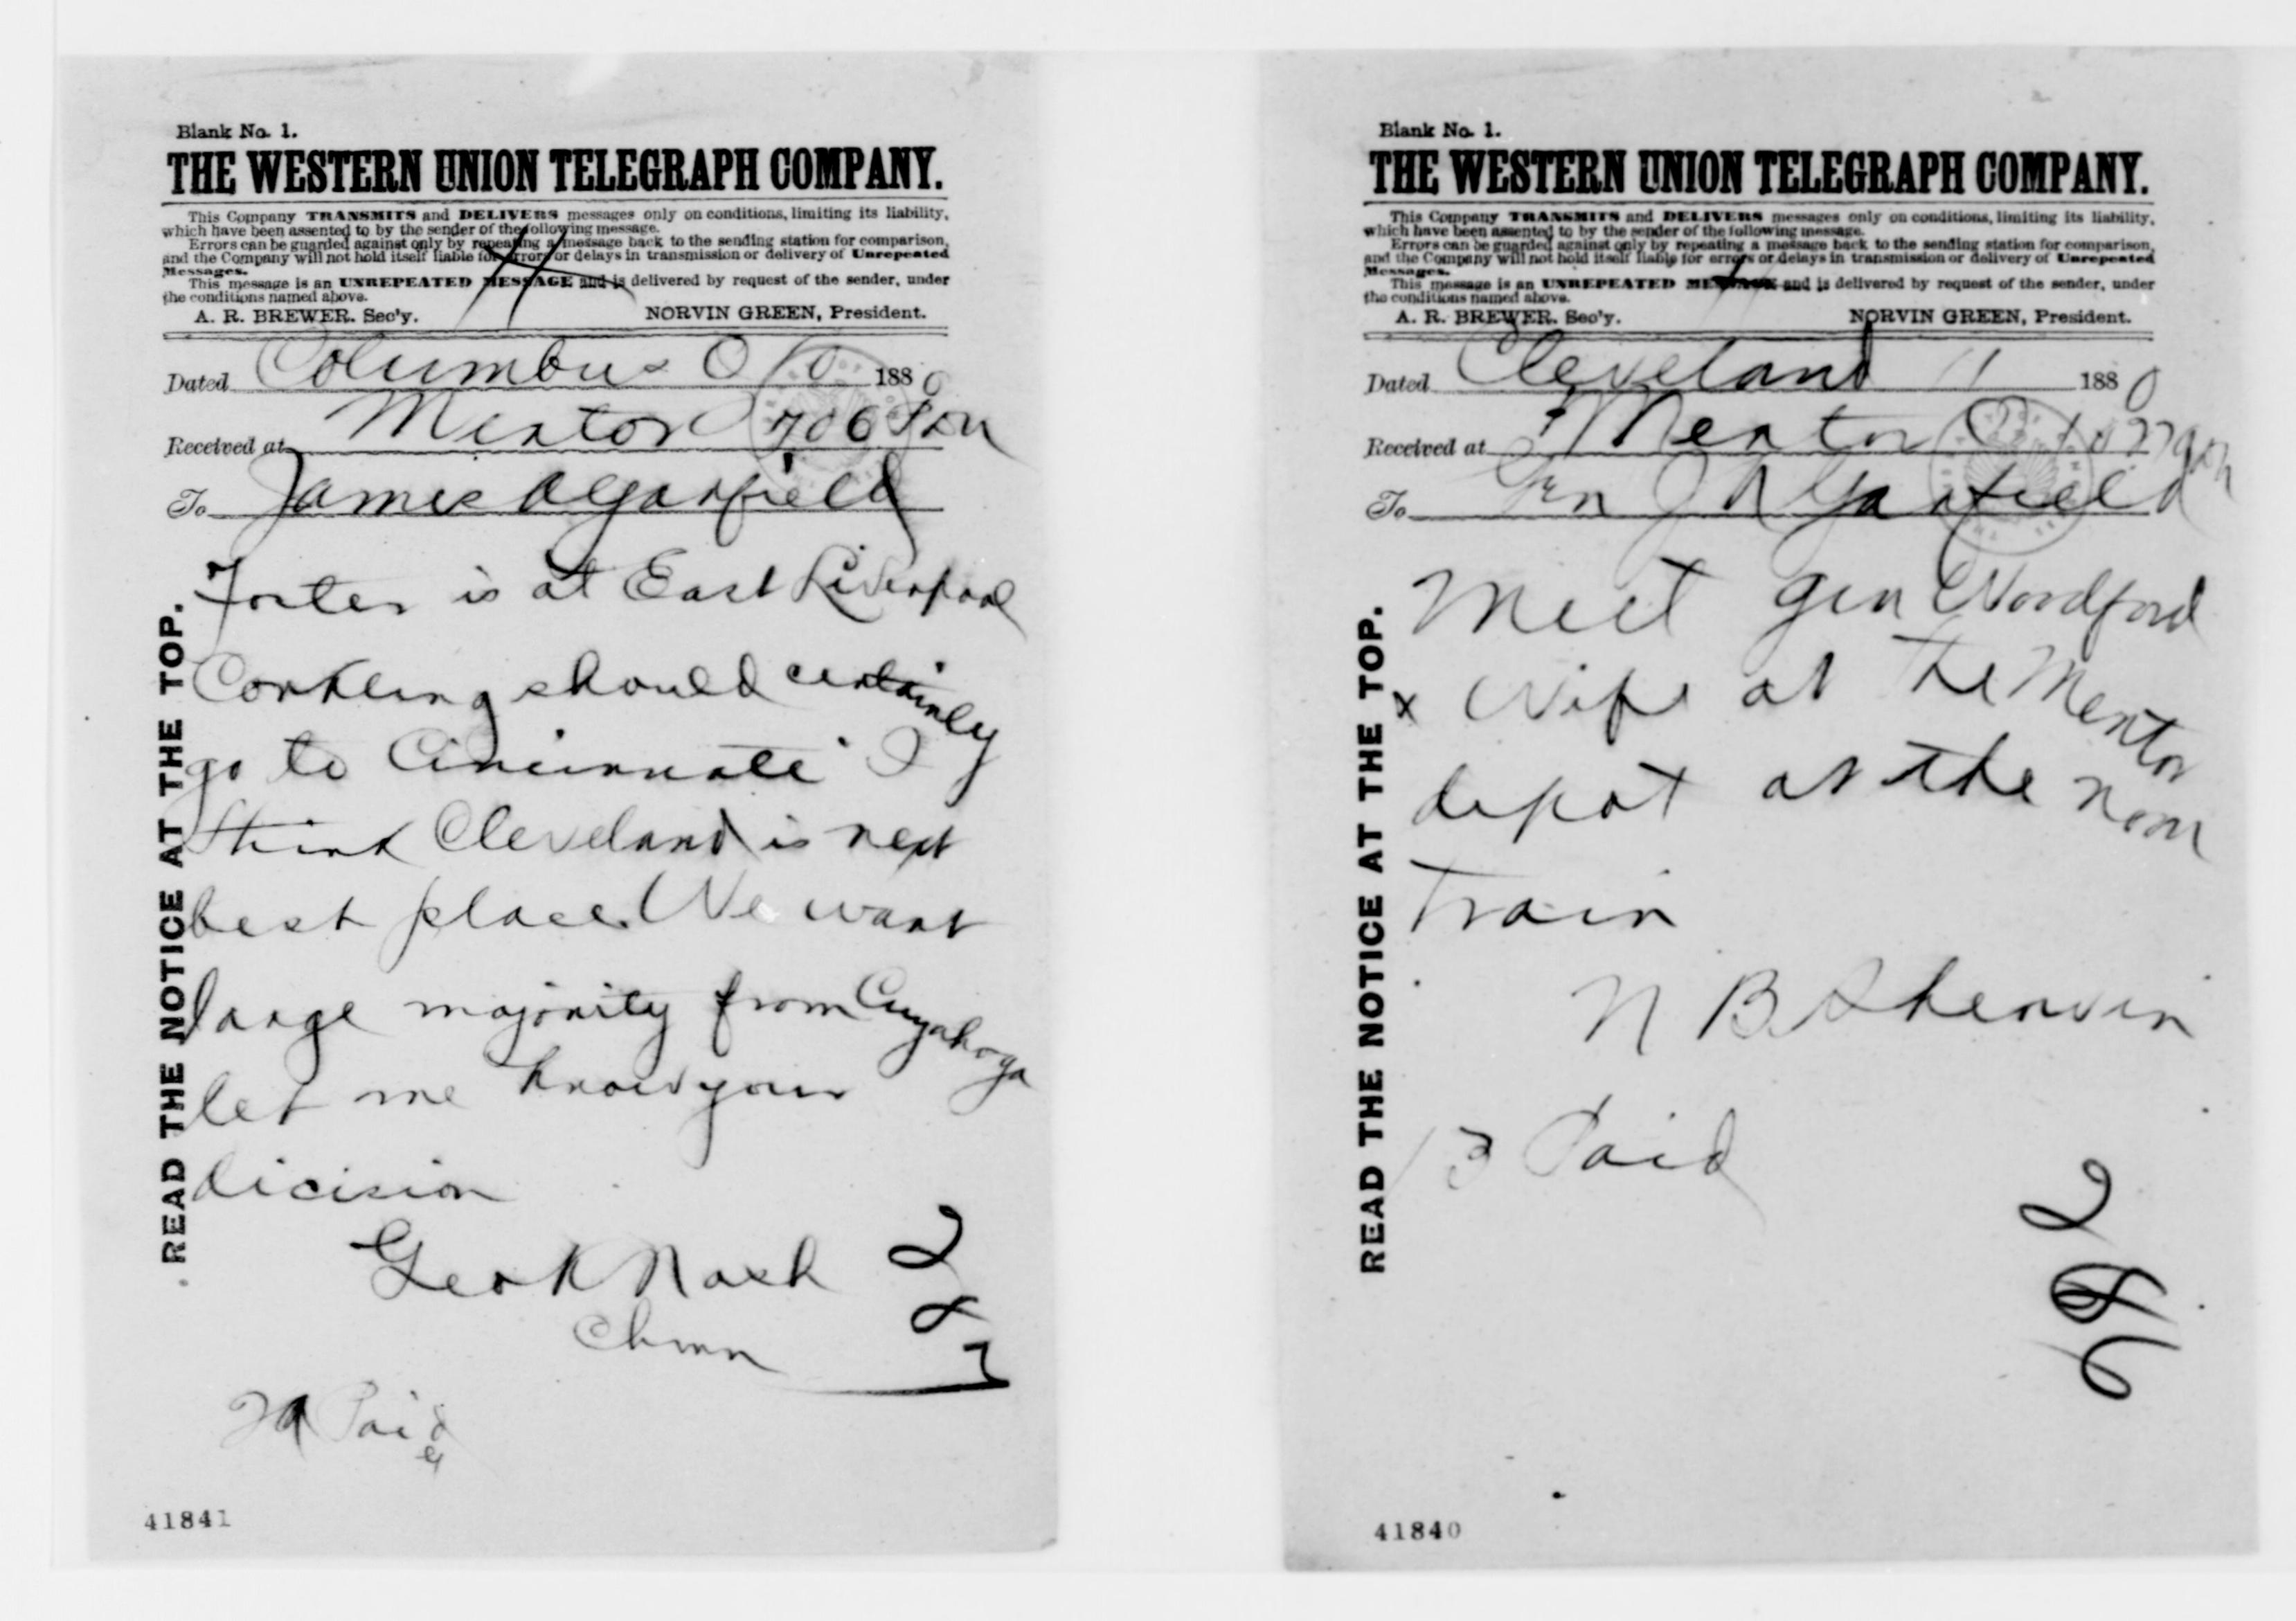 Blank No. 1.
THE WESTERN UNION TELEGRAPH COMPANY.
This Company TRANSMITS and DELIVERS messages only on conditions, limiting its liability,
which have been assented to by the sender of the following message.
Errors can be guarded against only by repeating a message back to the sending station for comparison,
and the Company will not hold itself liable for errors or delays in transmission or delivery of Unrepeated
Messages.
This message is an UNREPEATED MESSAGE and is delivered by request of the sender, under
the conditions named above.
A. R. BREWER. Sec'y. NORVIN GREEN, President.
Dated Columbus O 10 1880
Received at Mentor O 706 Pm
To James A Garfield
Foster is at East Liverpool
Conkling should certainly
go to Cincinnati I
think Cleveland is next
best place We want
large majority from Cuyahoga
let me know your
dicision
Geo K Nash
Chmn
29 Paid
287
READ THE NOTICE AT THE TOP.
41841
Blank No. 1.
THE WESTERN UNION TELEGRAPH COMPANY.
This Company TRANSMITS and DELIVERS messages only on conditions, limiting its liability,
which have been assented to by the sender of the following message.
Errors can be guarded against only by repeating a message back to the sending station for comparison,
and the Company will not hold itself liable for errors or delays in transmission or delivery of Unrepeated
Messages.
This message is an UNREPEATED MESSAGE and is delivered by request of the sender, under
the conditions named above.
A. R. BREWER. Sec'y. NORVIN GREEN, President.
Dated Cleveland 11 1880
Received at Mentor O
To Gen J A Garfield
Meet Gen Woodford
& Wife at the Mentor
depot at the noon
train
N B Sherwin
13 Paid
286
READ THE NOTICE AT THE TOP.
41840